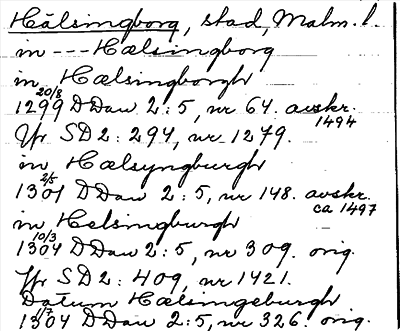 Hälsingborg, stad, Malm. l.
in --- Hælsingborg
in Hælsingborgh
20/8
1299 DDan 2:5, nr 64. avskr. 1494
Jfr SD 2: 294, nr 1279.
in Hælsyngburgh
2/5
1301 DDan 2:5, nr 148. avskr. ca 1497
in Helsingburgh
10/3
1304 DDan 2:5, nr 309. orig.
Jfr SD 2: 409, nr 1421.
Datum Hælsingeburgh
1304 DDan 2:5, nr 326. orig.